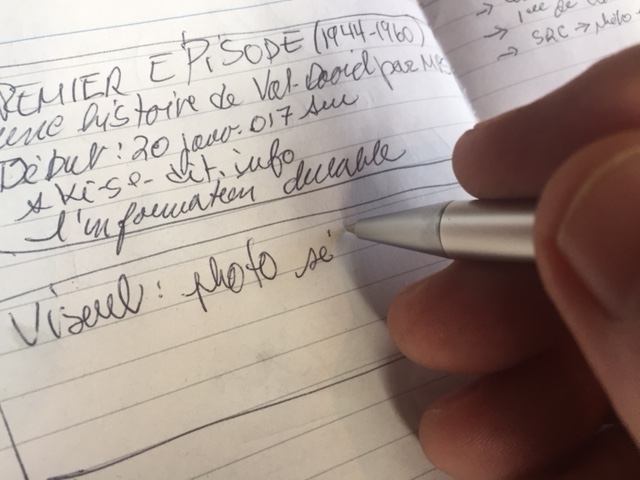 REMIER EPISODE (1944-1960)
une histoire de Val-David par
Début: 20 janv. 017 sur
ski-se-dit.info
l'information durable
Visuel: photo sé
→
→ 1ère de
→ SRC → photo